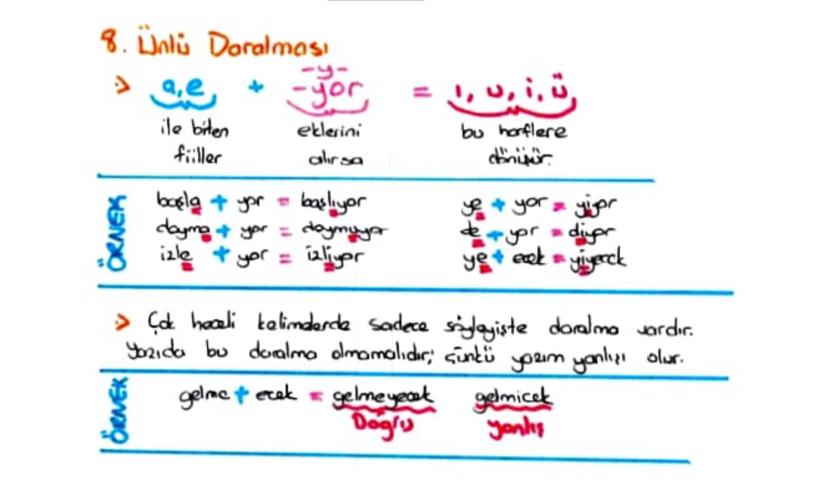 8. Ünlü Daralması
-y-
a, e + -yor = ı, u, i, ü
ile biten eklerini bu harflere
fiiller alırsa dönüşür.
ÖRNEK
başla + yor = başlıyor ye + yor = yiyor
doyma + yor = doymuyor de + yor = diyor
izle + yor = izliyor ye + ecek = yiyecek
Çok heceli kelimelerde sadece söyleyişte daralma vardır.
Yazıda bu daralma olmamalıdır; çünkü yazım yanlışı olur.
ÖRNEK
gelme + ecek = gelmeyecek gelmicek
Doğru yanlış